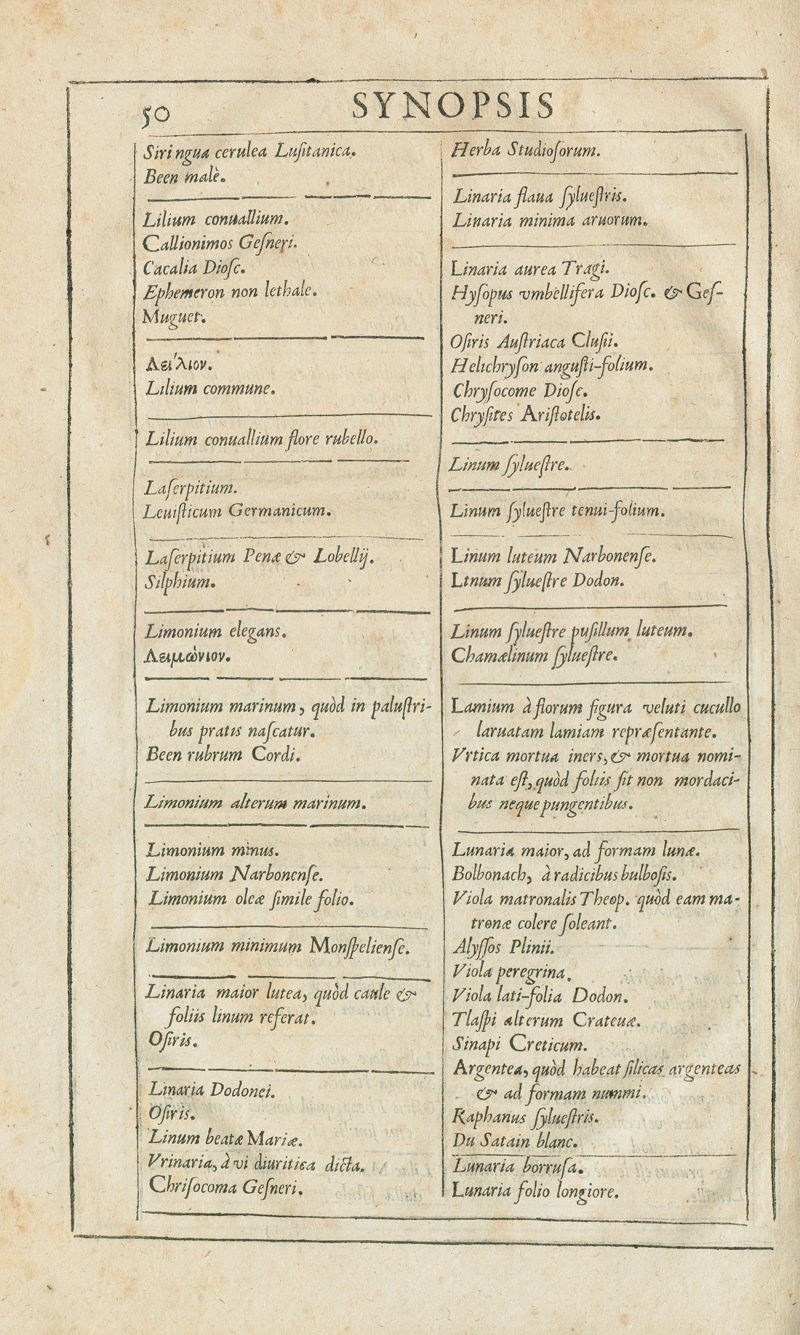 50 SYNOPSIS
Siringua cerulea Luſitanica.
Been malè.
Lilium conuallium.
Callionimos Geſneri.
Cacalia Dioſc.
Ephemeron non lethale.
Muguet.
Λείλιον.
Lilium commune.
Lilium conuallium flore rubello.
Laſerpitium.
Leuiſticum Germanicum.
Laſerpitium Penæ & Lobellij.
Silphium.
Limonium elegans.
Λειμώνιον.
Limonium marinum, quòd in paluſtri-
bus pratis naſcatur.
Been rubrum Cordi.
Limonium alterum marinum.
Limonium minus.
Limonium Narbonenſe.
Limonium oleæ ſimile folio.
Limonium minimum Monſpelienſe.
Linaria maior lutea, quòd caule &
foliis linum referat.
Oſiris.
Linaria Dodonei.
Oſiris.
Linum beatæ Mariæ.
Vrinaria, à vi diuritica dicta.
Chriſocoma Geſneri.
Herba Studioſorum.
Linaria flaua ſylueſtris.
Linaria minima aruorum.
Linaria aurea Tragi.
Hyſopus vmbellifera Dioſc. & Geſ-
neri.
Oſiris Auſtriaca Cluſii.
Helichryſon anguſti-folium.
Chryſocome Dioſc.
Chryſites Ariſtotelis.
Linum ſylueſtre.
Linum ſylueſtre tenui-folium.
Linum luteum Narbonenſe.
Ltnum ſylueſtre Dodon.
Linum ſylueſtre puſillum luteum.
Chamælinum ſylueſtre.
Lamium à florum figura veluti cucullo
laruatam lamiam repræſentante.
Vrtica mortua iners, & mortua nomi-
nata eſt, quòd foliis ſit non mordaci-
bus neque pungentibus.
Lunaria maior, ad formam lunæ.
Bolbonach, à radicibus bulboſis.
Viola matronalis Theop. quòd eam ma-
tronæ colere ſoleant.
Alyſſos Plinii.
Viola peregrina.
Viola lati-folia Dodon.
Tlaſpi alterum Crateuæ.
Sinapi Creticum.
Argentea, quòd habeat ſilicas argenteas
& ad formam nummi.
Raphanus ſylueſtris.
Du Satain blanc.
Lunaria borruſa.
Lunaria folio longiore.